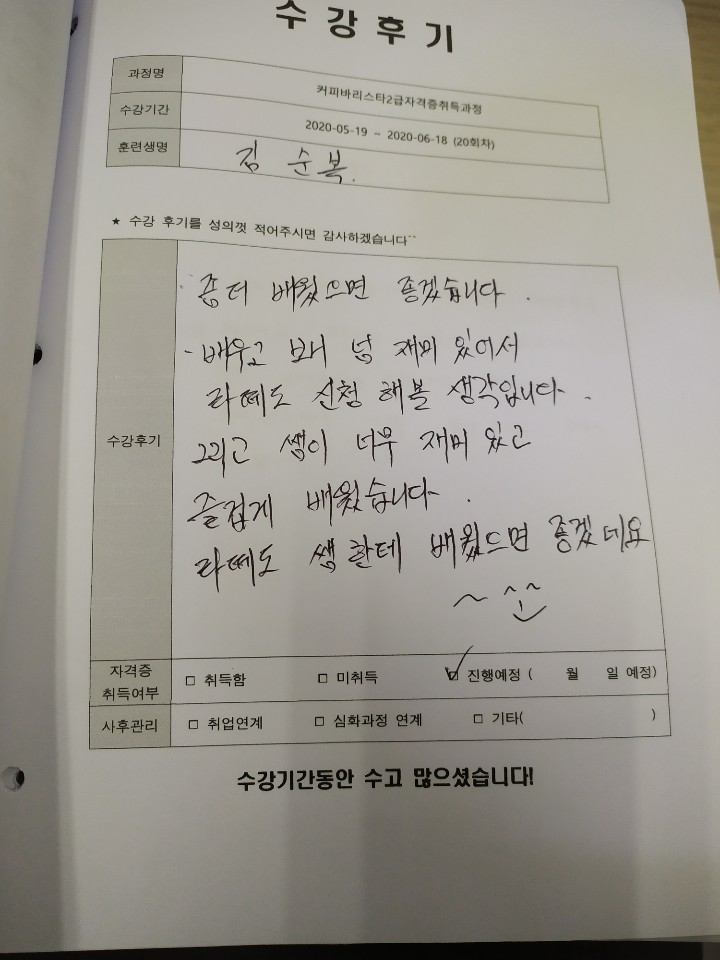 수강후기
과정명 커피바리스타2급자격증취득과정
수강기간 2020-05-19 ~ 2020-06-18 (20회차)
훈련생명 김 순복.
★ 수강 후기를 성의껏 적어주시면 감사하겠습니다^^
- 좀더 배웠으면 좋겠습니다.
- 배우고 보니 넘 재미 있어서
라떼도 신청 해볼 생각입니다.
수강후기
그리고 쌤이 너무 재미 있고
즐겁게 배웠습니다.
라떼도 쌤 한테 배웠으면 좋겠네요
~ ^^
자격증 취득여부 □ 취득함 □ 미취득 ☑ 진행예정 ( 월 일 예정)
사후관리 □ 취업연계 □ 심화과정 연계 □ 기타( )
수강기간동안 수고 많으셨습니다!